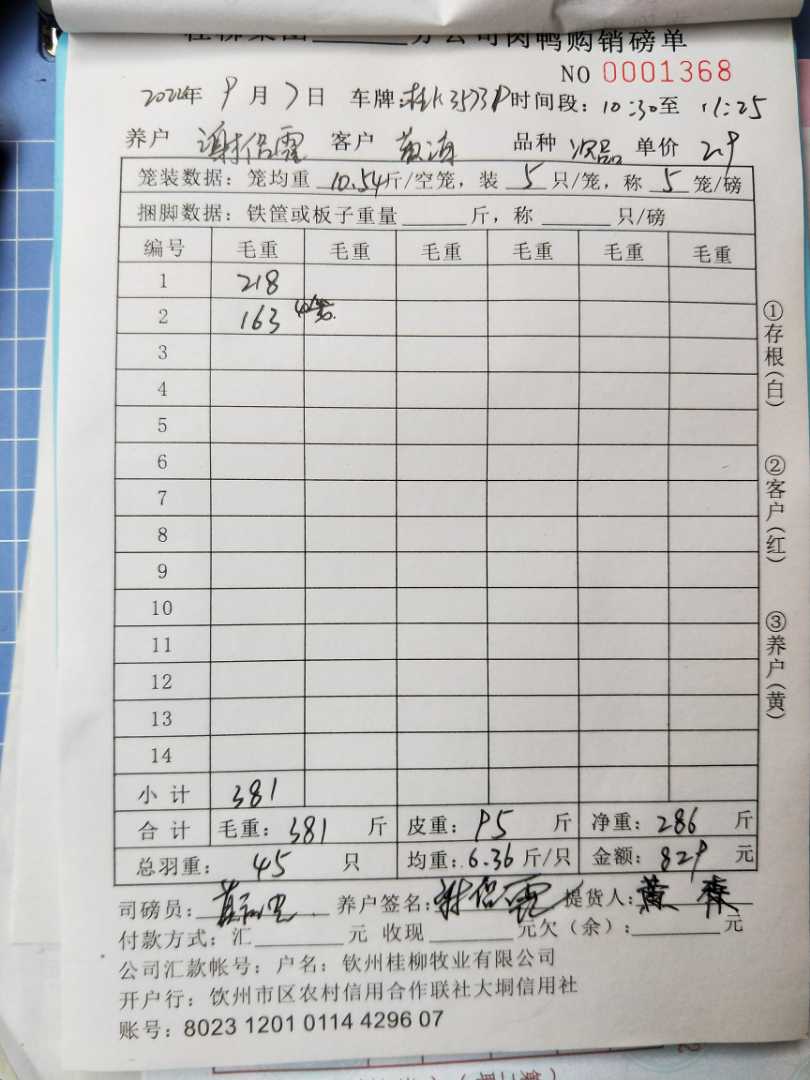 分公司肉鸭购销磅单
NO 0001368
年 9 月 7 日 车牌: 桂K3573P 时间段: 10:30 至 11:25
养户 谢倍霞 客户 黄海 品种 次品 单价 2.9
笼装数据: 笼均重 10.54 斤/空笼, 装 5 只/笼, 称 5 笼/磅
捆脚数据: 铁筐或板子重量 斤, 称 只/磅
编号 毛重 毛重 毛重 毛重 毛重 毛重
1 218
2 163 4笼
3
4
5
6
7
8
9
10
11
12
13
14
小计 381
合计 毛重: 381 斤 皮重: 95 斤 净重: 286 斤
总羽重: 45 只 均重: 6.36 斤/只 金额: 829 元
司磅员: 养户签名: 谢倍霞 提货人: 黄
付款方式: 汇 元 收现 元欠(余): 元
公司汇款帐号: 户名: 钦州桂柳牧业有限公司
开户行: 饮州市区农村信用合作联社大垌信用社
账号: 8023 1201 0114 4296 07
①存根(白)
②客户(红)
③养户(黄)